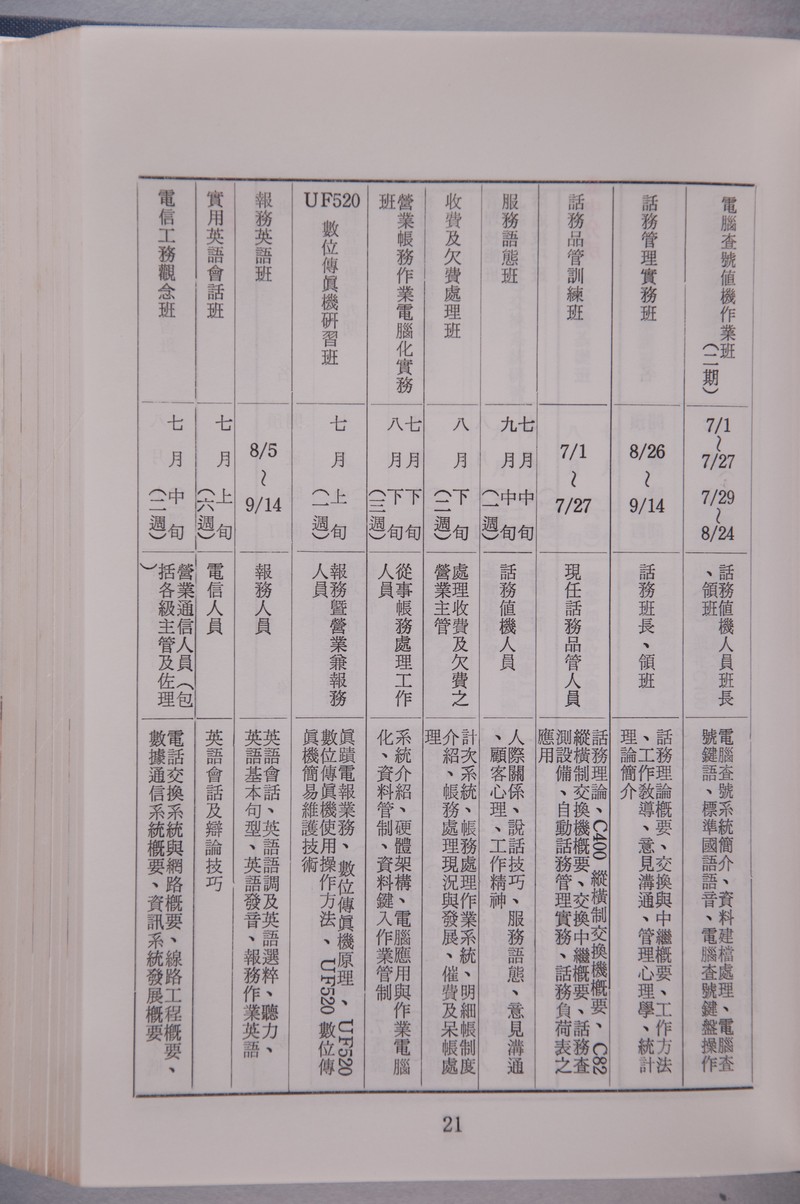 電腦查號值機作業班
（二期）
7/1
～
7/27
7/29
～
8/24
話務值機人員班長
、領班
電腦查號系統簡介、資料建檔處理、電腦查
號鍵語、標準國語語音、電腦查號鍵盤操作
話務管理實務班
8/26
～
9/14
話務班長、領班
話務理論概要、交換與中繼概要、工作方法
、工作教導、意見溝通、管理心理學、統計
理論簡介
話務品管訓練班
7/1
～
7/27
現任話務品管人員
話務理論、C400 縱橫制交換機概要、C82
縱橫制交換機概要、交換中繼概要、話務查
測設備、自動話務管理實務、話務負荷表之
應用
服務語態班
七月中旬
九月中旬
（二週）
話務值機人員
人際關係、說話技巧、服務語態、意見溝通
、顧客心理、工作精神
收費及欠費處理班
八月下旬
（二週）
處理收費及欠費之
營業主管
計次系統、帳務處理作業系統、明細帳制度
介紹、帳務處理現況與發展、催費及呆帳處
理
營業帳務作業電腦化實務
班
七月下旬
八月下旬
（三週）
從事帳務處理工作
人員
系統介紹、硬體架構、電腦應用與作業電腦
化、資料管制、資料鍵入作業管制
UF520
數位傳眞機研習班
七月上旬
（一週）
報務暨營業兼報務
人員
眞蹟電報業務、數位傳眞機原理、UF520
數位傳眞機使用操作方法、UF520 數位傳
眞機簡易維護技術
報務英語班
8/5
～
9/14
報務人員
英語會話、英語語調及英語選粹、聽力、
英語基本句型、英語發音、報務作業英語
實用英語會話班
七月上旬
（六週）
電信人員
英語會話及辯論技巧
電信工務觀念班
七月中旬
（二週）
營業通信人員（包
括各級主管及佐理
）
電話交換系統與網路概要、線路工程概要、
數據通信系統概要、資訊系統發展概要
21